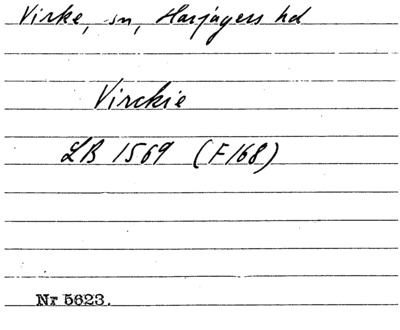 Virke, sn, Harjagers hd
Virckie
LB 1569 (F168)
Nr 5623.